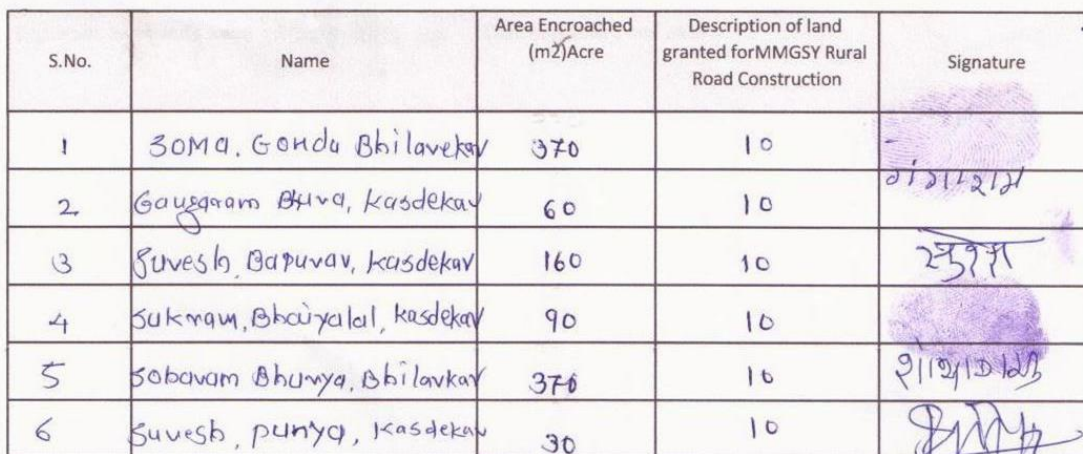 S.No. Name Area Encroached (m2)Acre Description of land granted forMMGSY Rural Road Construction Signature
1 SOMa. Gondu Bhilavekar 370 10
2 Gangaram Bhura, Kasdekar 60 10 गंगाराम
3 Suresh, Bapurav, Kasdekar 160 10 सुरेश
4 Sukram, Bhaiyalal, Kasdekar 90 10
5 Sobaram Bhurya, Bhilavkar 370 10
6 Suresh, Punya, Kasdekar 30 10